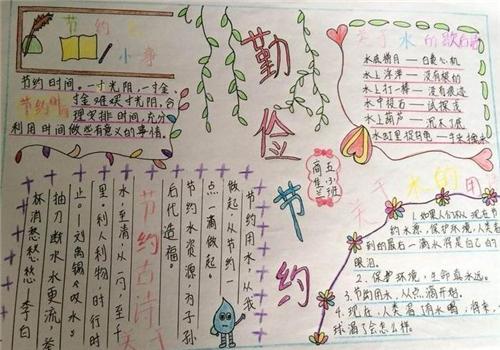 节约
小
节约时间。一寸光阴一寸金,
寸金难买寸光阴,合
理安排时间,充分
利用时间做些有意义的事情。
节约用水,从我
做起,从节约一
点一滴做起。
节约水资源,为子孙
后代造福。
节约古诗
水,至清
里,利人利物时行时
止。 刘禹锡《叹水》
抽刀断水水更流,举
杯消愁愁愁 李白
勤俭节约
五小班
关于水的歇后语
水底捞月——白费心机
水上浮萍——没有根的
水上打一棒——没有痕迹
水中投石——试探深
水上葫芦——沉不下底
关于水的
1.如果人们从现在
约水源,保护环境,人类看
到的最后一滴水将是自己的
眼泪。
2、保护环境,生命真永远。
3.节约用水,从点滴开始。
4.现在,人类看了用水喝,将来,
球看了会怎么样。